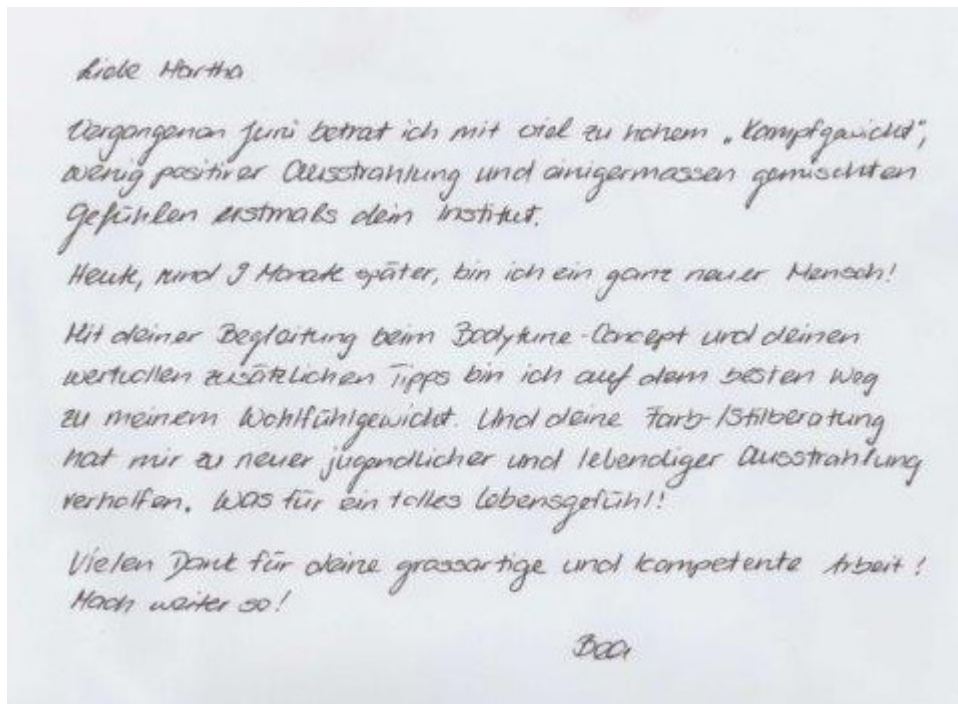 Liebe Martha
Vergangenen Juni betrat ich mit viel zu hohem „Kampfgewicht",
wenig positiver Ausstrahlung und einigermassen gemischten
Gefühlen erstmals dein Institut.
Heute, rund 9 Monate später, bin ich ein ganz neuer Mensch!
Mit deiner Begleitung beim Bodytune-Concept und deinen
wertvollen zusätzlichen Tipps bin ich auf dem besten Weg
zu meinem Wohlfühlgewicht. Und deine Farb-/Stilberatung
hat mir zu neuer jugendlicher und lebendiger Ausstrahlung
verholfen. Was für ein tolles Lebensgefühl!
Vielen Dank für deine grossartige und kompetente Arbeit!
Mach weiter so!
Bea